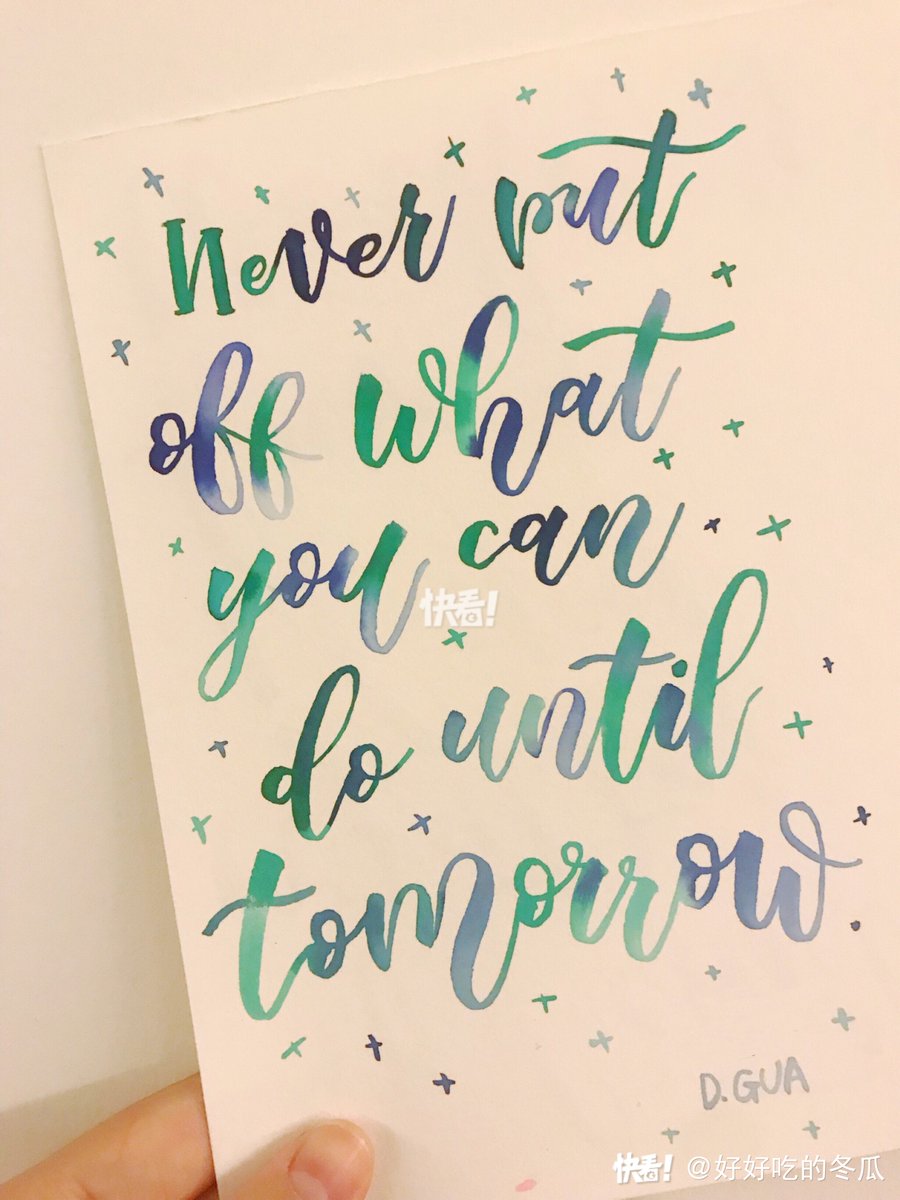 Never put
off what
you can
快看!
do until
tomorrow.
D.GUA
快看! @好好吃的冬瓜